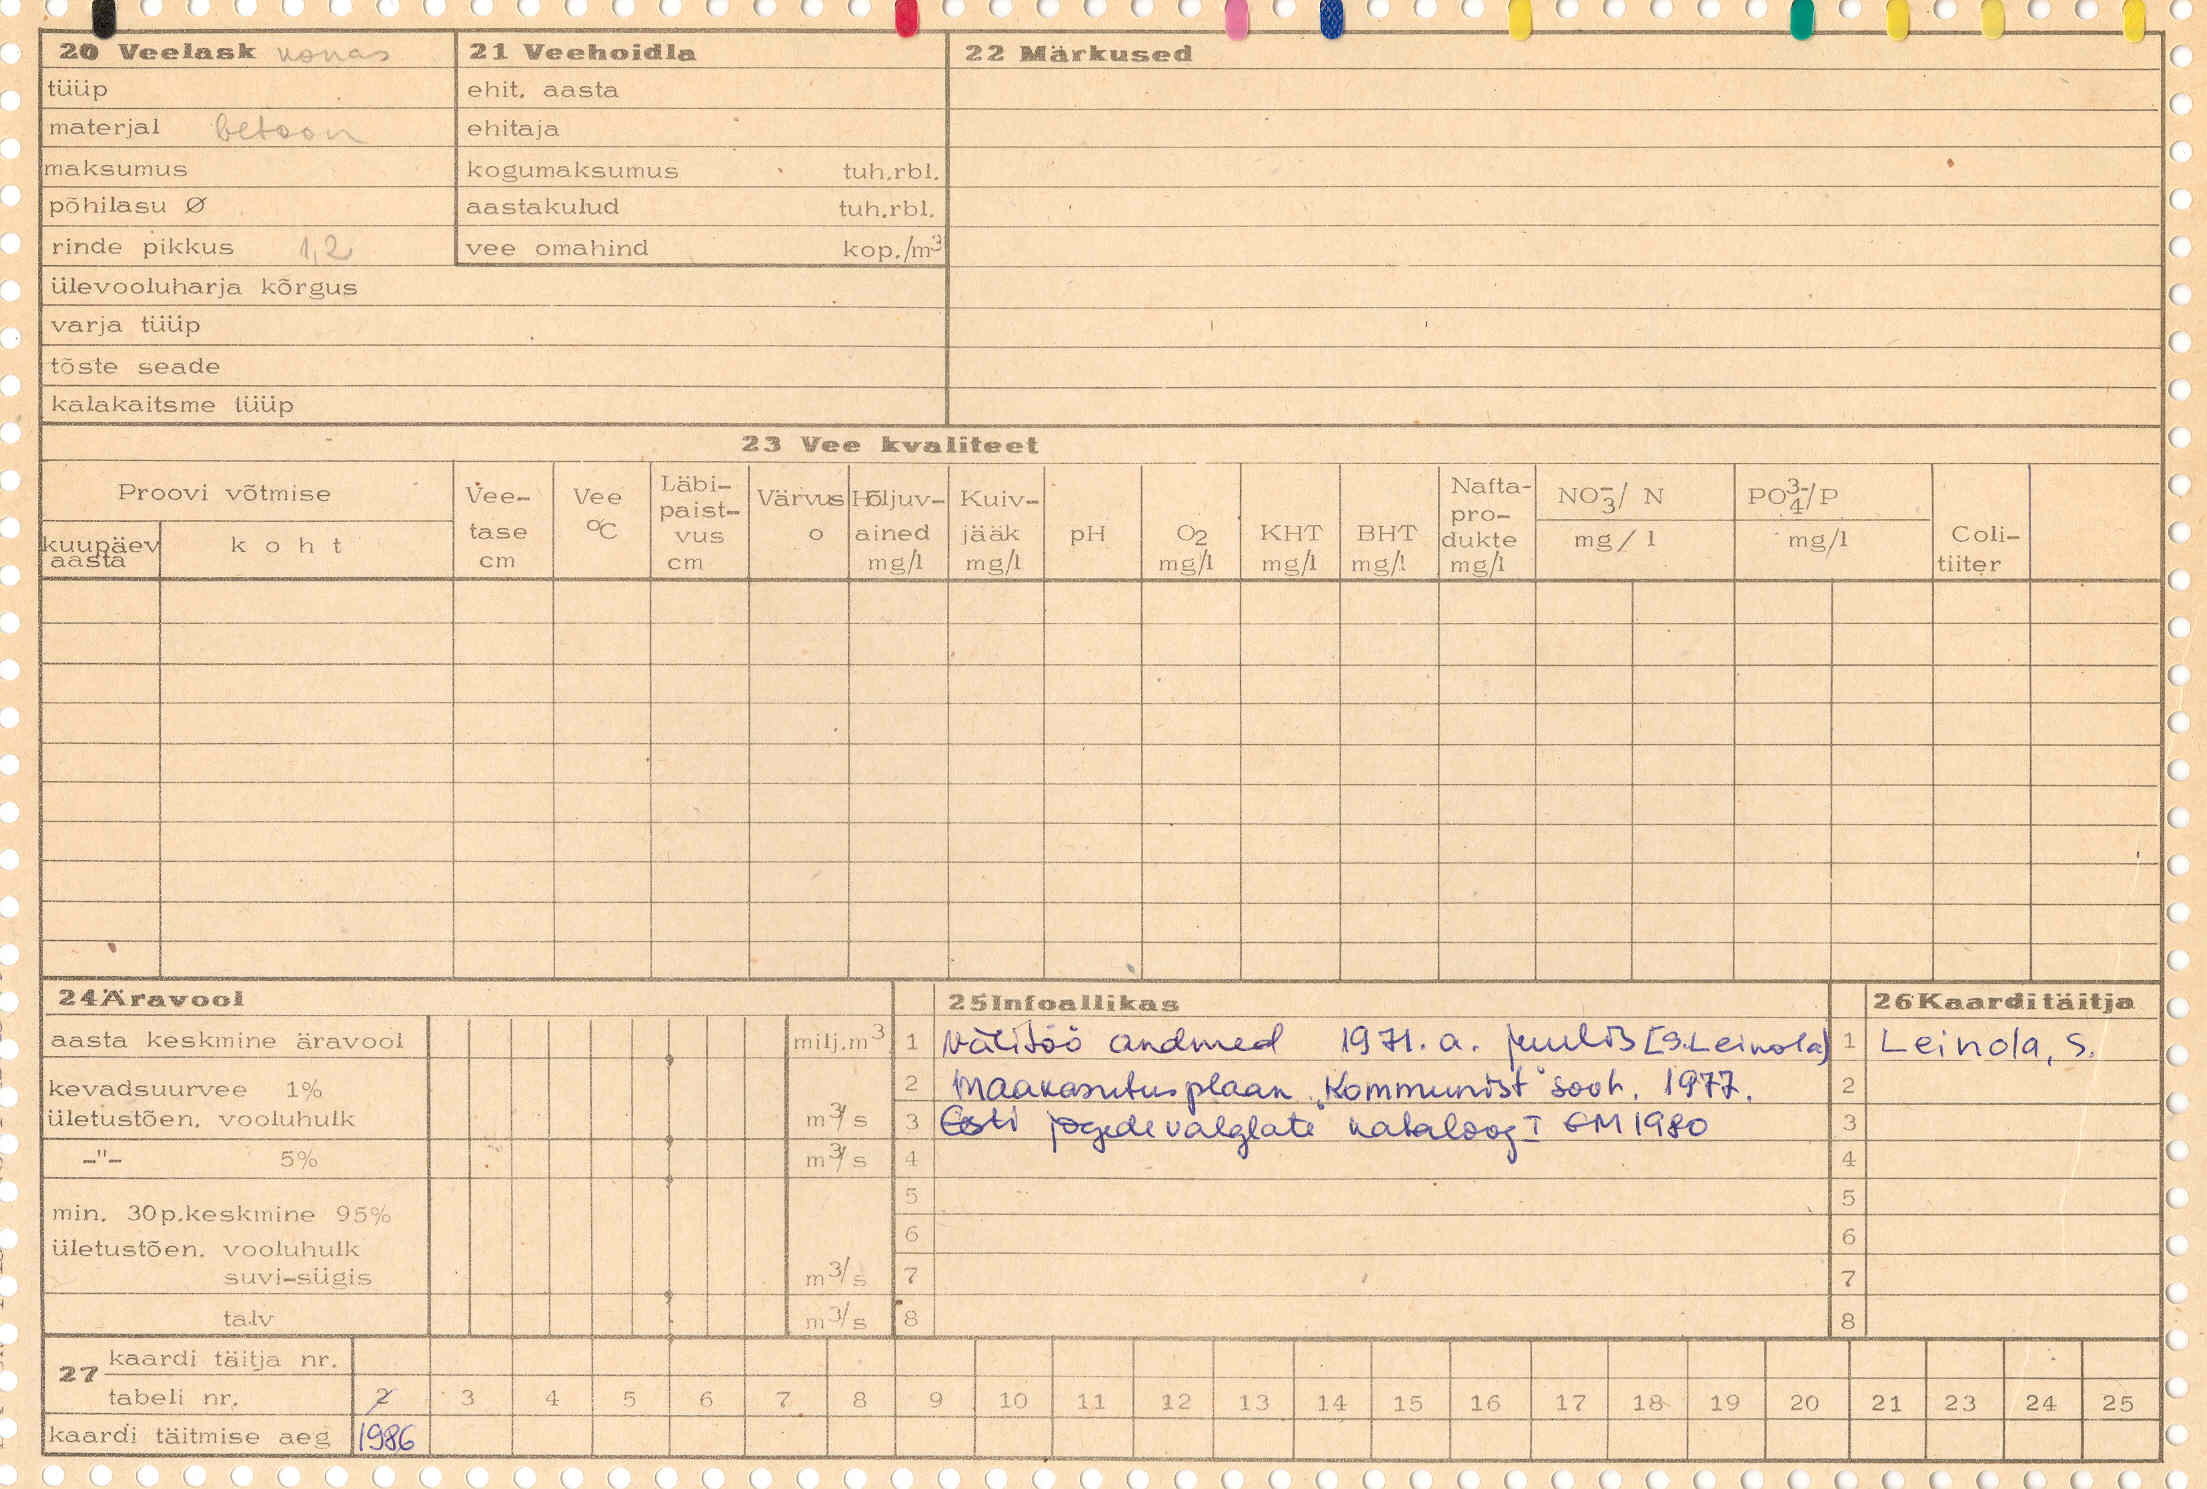 20 Veelask
21 Veehoidla
22 Märkused
tüüp
ehit. aasta
materjal betoon
ehitaja
maksumus
kogumaksumus tuh.rbl.
põhilasu Ø
aastakulud tuh.rbl.
rinde pikkus 1,2
vee omahind kop./m³
ülevooluharja kõrgus
varja tüüp
tõste seade
kalakaitsme tüüp
23 Vee kvaliteet
Proovi võtmise
kuupäev aasta
koht
Vee-tase cm
Vee °C
Läbi-paist-vus cm
Värvus o
Hõljuv-ained mg/l
Kuiv-jääk mg/l
pH
O2 mg/l
KHT mg/l
BHT mg/l
Nafta-pro-dukte mg/l
NO₃⁻/ N mg/l
PO₄³⁻/P mg/l
Coli-tiiter
24 Äravool
25 Infoallikas
26 Kaarditäitja
aasta keskmine äravool milj.m³
1 Välitöö andmed 1971. a. juulis [S.Leinola)
1 Leinola, S.
kevadsuurvee 1%
2 Maakasutusplaan „Kommunist" sooh. 1977.
2
ületustõen. vooluhulk m³/s
3 Eesti jõgede valglate kataloog I EM 1980
3
-"- 5% m³/s
4
4
5
5
min. 30p.keskmine 95%
6
6
ületustõen. vooluhulk
suvi-sügis m³/s
7
7
talv m³/s
8
8
27 kaardi täitja nr.
tabeli nr. 2 3 4 5 6 7 8 9 10 11 12 13 14 15 16 17 18 19 20 21 23 24 25
kaardi täitmise aeg 1986